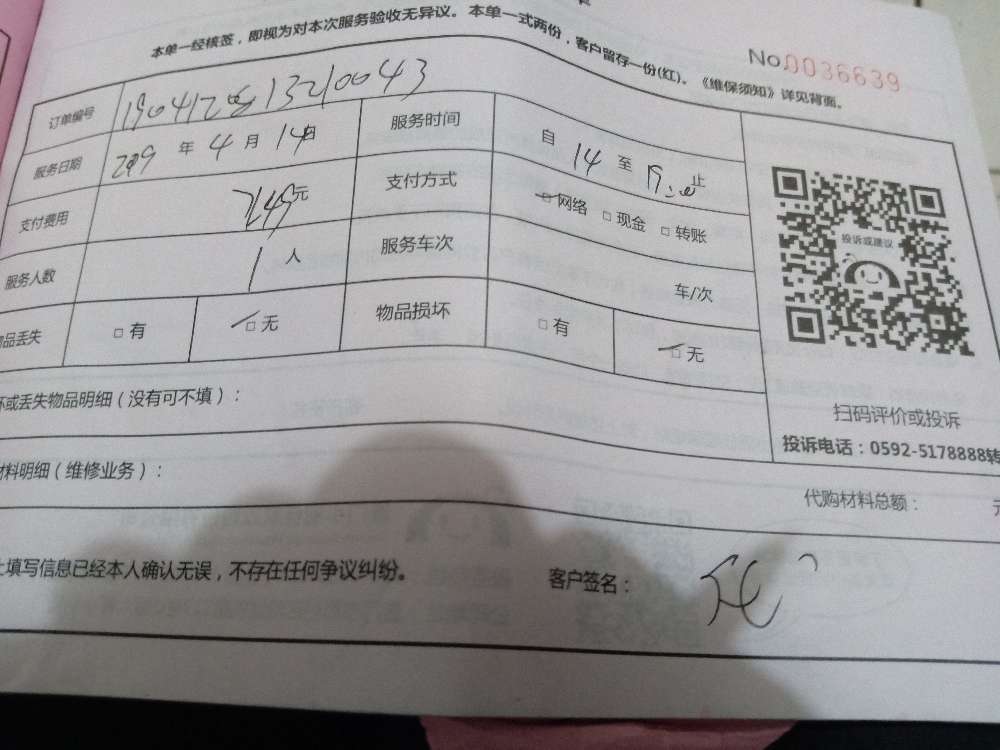 本单一经核签，即视为对本次服务验收无异议。本单一式两份，客户留存一份(红)。《维保须知》详见背面。
No.0036639
订单编号
服务日期 2019 年 4 月 14 日 服务时间 自 14 至 止
支付费用 249 元 支付方式 □ 网络 □ 现金 □ 转账
服务人数 1 人 服务车次 车/次
品丢失 □ 有 □ 无 物品损坏 □ 有 □ 无
投诉或建议
扫码评价或投诉
投诉电话：0592-5178888转
坏或丢失物品明细（没有可不填）：
材料明细（维修业务）：
代购材料总额： 元
上填写信息已经本人确认无误，不存在任何争议纠纷。 客户签名：